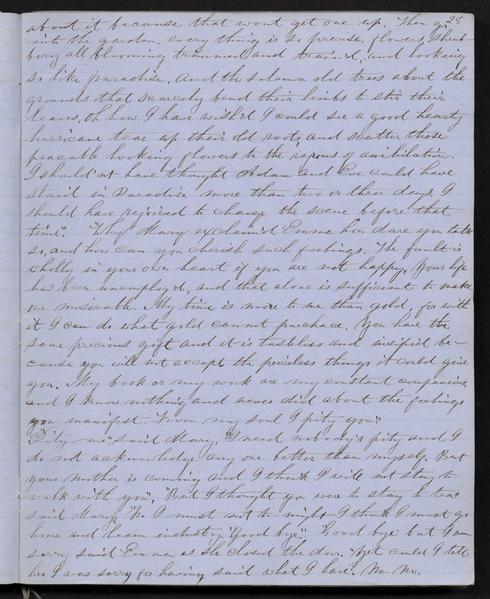 28
about it because that wont get one up. Then go
into the garden, every thing is so precise, flowers, shrub
bery all blooming trimmed and train'd, and looking
so like paradise. And the solemn old trees about the
grounds that scarcely bend their limbs to stir their
leaves, Oh how I have wish'd I could see a good hearty
hurricane tear up their old roots, and scatter those
peacable looking flowers to the regions of anihilation.
I should'nt have thought Adam and Eve could have
staid in Paradise more than two or three days, I
should have rejoiced to change the scene before that
time". "Why Mary exclaim'd Emma how dare you talk
so, and how can you cherish such feelings. The fault is
wholly in your own heart if you are not happy, Your life
has been unemploy'd, and that alone is sufficient to make
one misirable. My time is more to me than gold, for with
it I can do what gold cannot purchace. You have the
same precious gift and it is tastless and insipid be-
cause you will not accept the priceless things it could give
you. My book or my work are my constant companions
and I know nothing and never did about the feelings
you manifest. From my soul I pity you".
"Pity me" said Mary, "I need nobody's pity and I
do not acknowledg any one better than myself. But
your mother is coming and I think I will not stay to
walk with you". "But I thought you were to stay to tea"
said Mary. "No I must not to night I think I must go
home and learn industry, "Good bye", "Good bye but I am
sorry said Emma as she closed the door. "Yet could I tell
her I was sorry for having said what I have. No No.